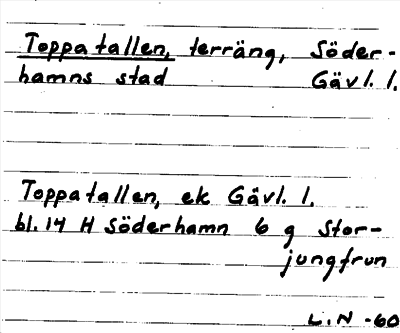 Toppatallen, terräng, Söder-
hamns stad Gävl. l.
Toppatallen, ek Gävl. l.
bl. 14 H Söderhamn 6 g Stor-
jungfrun
L.N -60